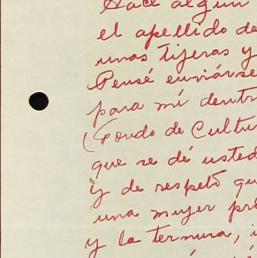 Hace algún
el apellido de
unas tijeras y
Pensé enviárse
para mí dentr
(Fondo de Cultu
que se dé usted
y de respeto qu
una mujer pr
y la ternura, i